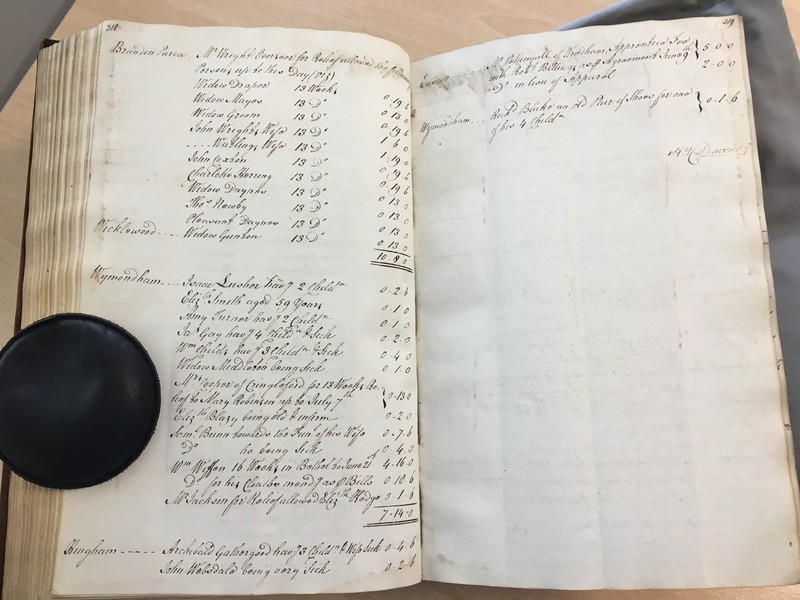 318
Brandon Parva. Mr. Wright Overseer for Relief allowed
Persons up to this Day (Viz)
Widow Draper 13 Weeks 0 - 19 - 6
Widow Mayes 13 Do. 0 - 13 - 0
Widow Groom 13 Do. 0 - 19 - 6
John Wright's Wife 13 Do.
.... Watling's Wife 13 Do.
John Coxson 13 Do.
Charlotte Herring 13 Do.
Widow Daynes 13 Do.
Thos. Newby 13 Do. 0 13
Pleasant Daynes 13 Do. 0 13 0
Wicklewood .... Widow Gunton 13 Do. 0 13 0
10 - 8 - 0
Wymondham .... Isaac Lusher havg. 2 Childn. 0 - 2 - 6
Elizth. Smith aged 59 Years 0 - 1 - 0
Amy Turner havg. 2 Childn. 0 - 1 - 0
Jas. Gay havg. 4 Childn. & Sick 0 - 2 - 0
Wm. Childs havg. 3 Childn. & Sick 0 - 4 - 0
Widow Middleton being Sick 0 - 1 - 0
Mr. Cooper of Cringleford for 13 Weeks Re-
lief to Mary Robinson up to July 7th } 0 - 13 - 0
Elizth. Blazy being old & infirm 0 - 2 - 0
Saml. Bunn towards the Funl. of his Wife 0 - 7 - 6
Do. he being Sick 0 - 4 - 0
Wm. Wiffen 16 Weeks in Bethel to June 21st 4 - 16 - 0
Do. for his Cloaths mendg. as P Bills 0 - 18 - 6
Mr. Jackson for Relief allowed Elizth. 0 - 1 - 6
7 - 14 - 0
Hingham ..... Archibald Gathergood havg. 3 Childn. & Wife Sick 0 - 4 - 6
John Websdale being very Sick 0 - 2 - 6
319
Mr. of Apprentice Fee
with Robt. as P Agreement } 5 - 0 - 0
Do. in lieu of Apparel 2 - 0 - 0
Wymondham .... Richd. Blake an Pair of Shoes for one
of his 4 Childn. } 0 - 1 - 6